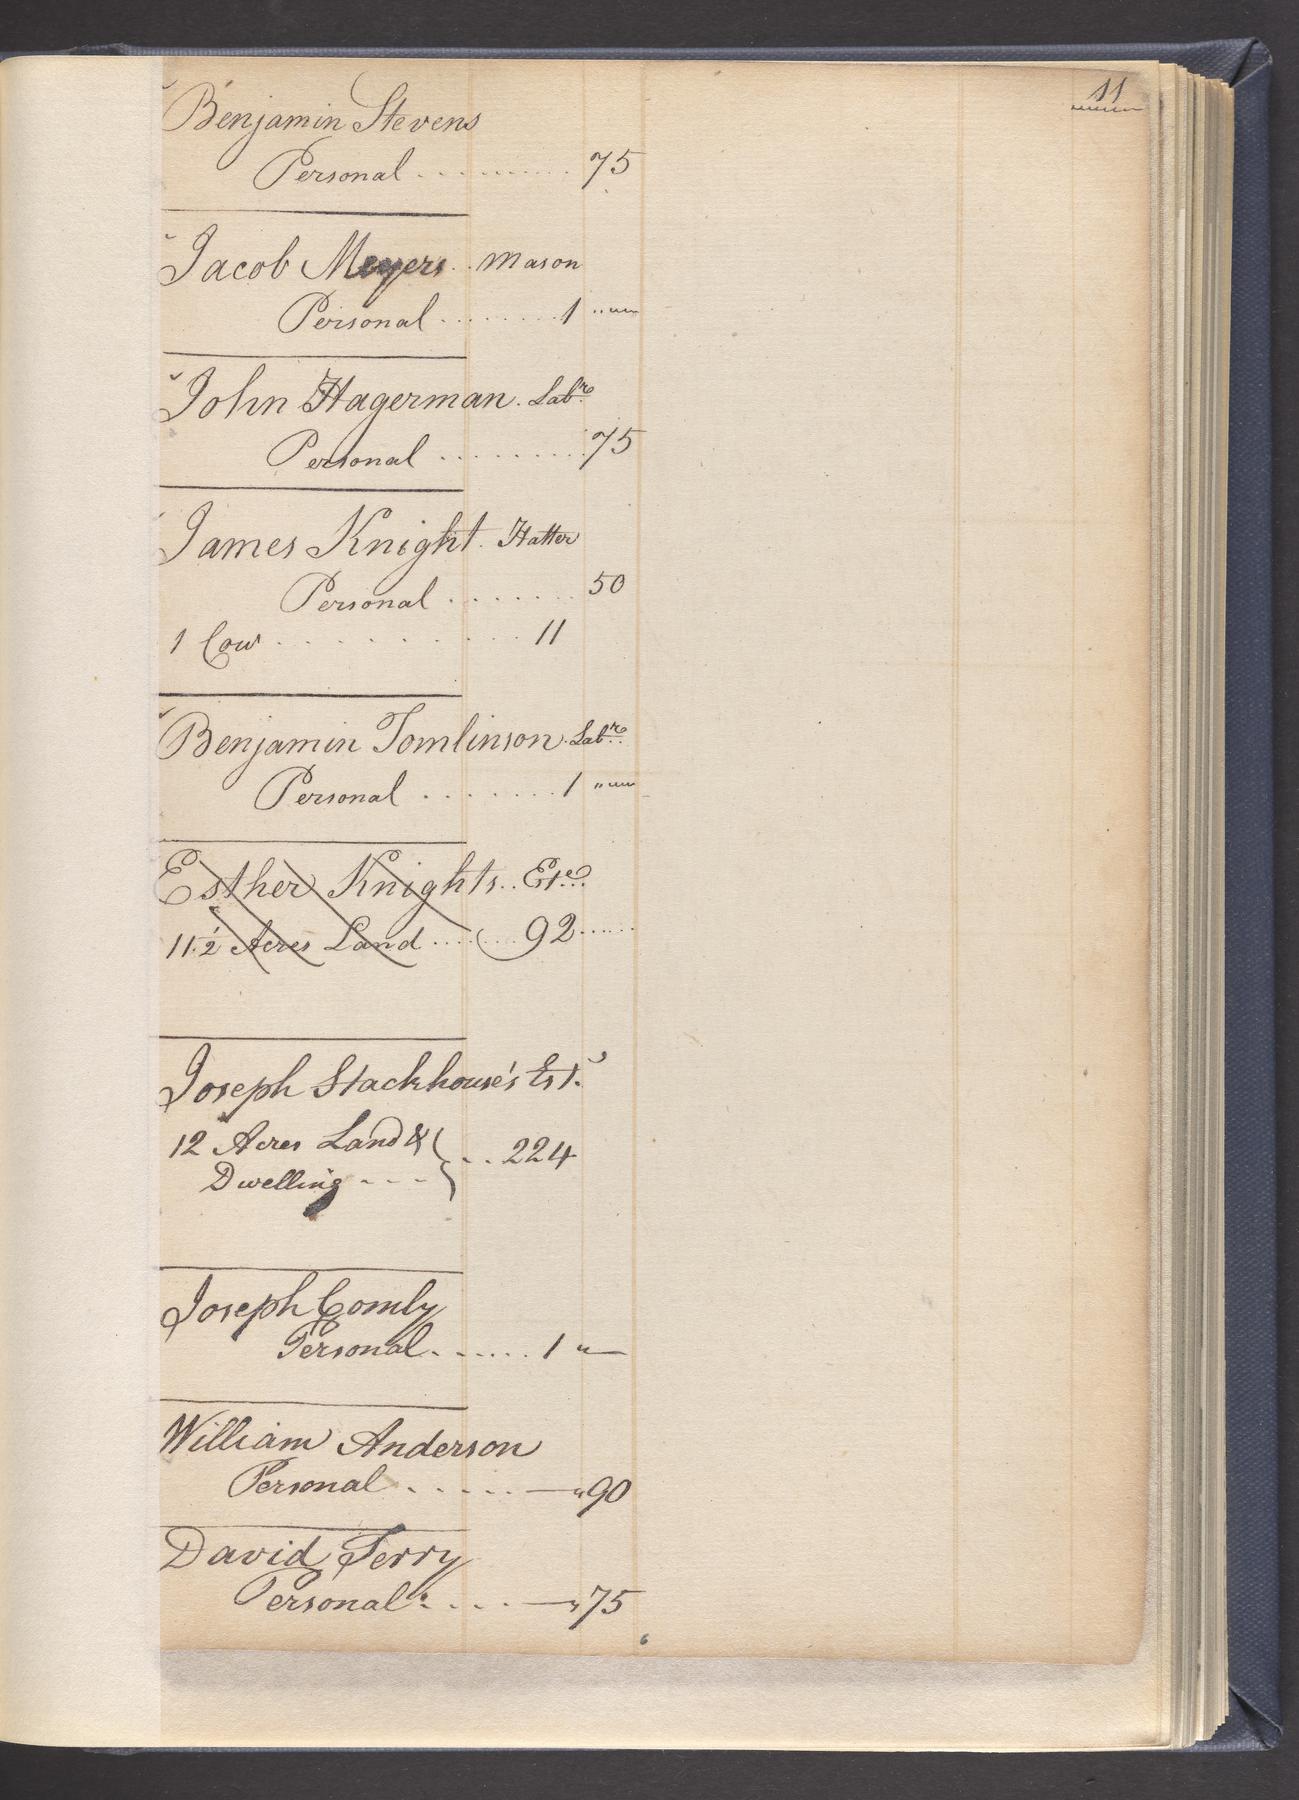 11
Benjamin Stevens
Personal .......... 75
Jacob Meyers .. Mason
Personal ........ 1 "
John Hagerman . Labr.
Personal .......... 75
James Knight . Hatter
Personal ........ 50
1 Cow ........... 11
Benjamin Tomlinson . Labr.
Personal ....... 1 "
Esther Knights .. Este.
11 1/2 Acres Land ........ 92 ......
Joseph Stackhouse's Est.
12 Acres Land & } ... 224
Dwelling - - -
Joseph Comly
Personal ....... 1 "
William Anderson
Personal ...... — "90
David Terry
Personal : . . . — "75